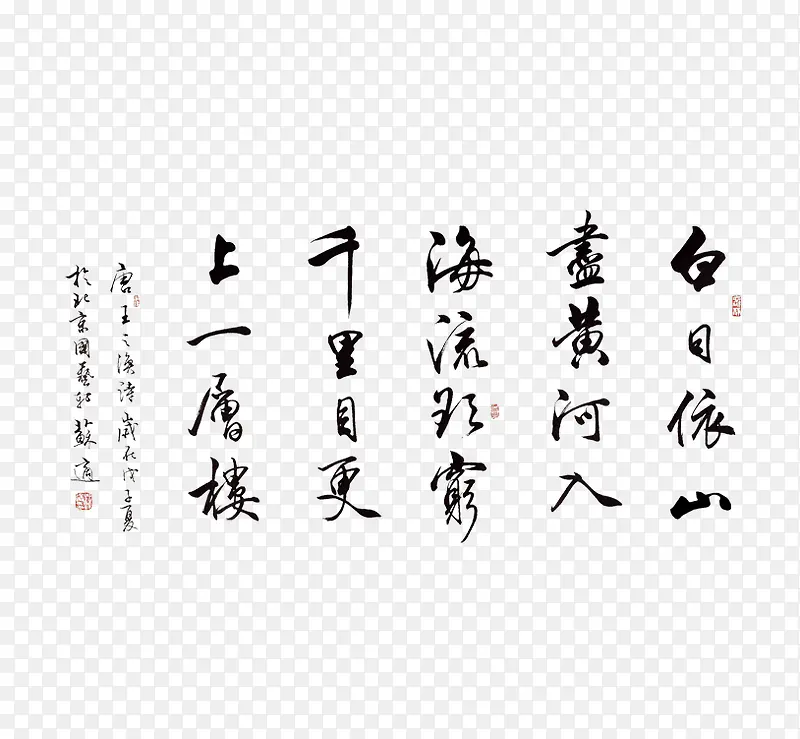 白日依山
盡黄河入
海流欲窮
千里目更
上一層樓
唐王之渙詩歲在戊子夏
於北京國藝蘇適